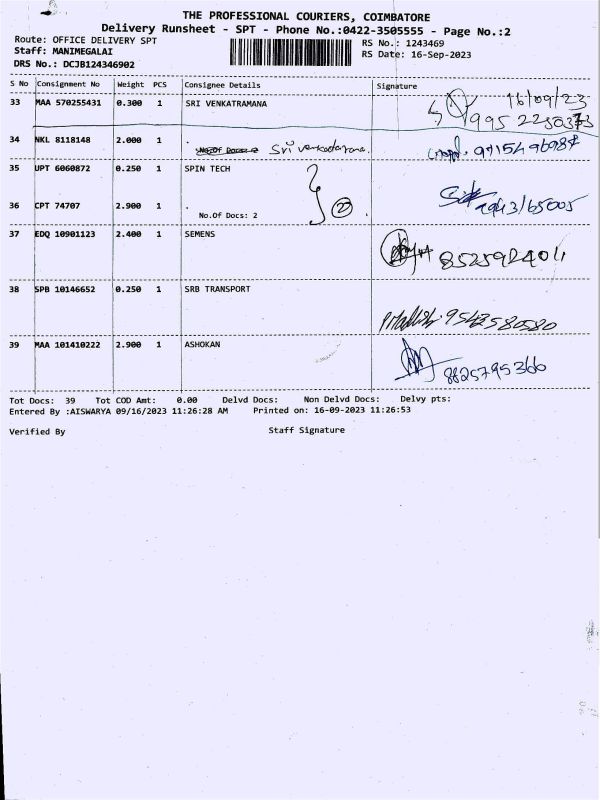 THE PROFESSIONAL COURIERS, COIMBATORE
Delivery Runsheet - SPT - Phone No.:0422-3505555 - Page No.:2
Route: OFFICE DELIVERY SPT
RS No.: 1243469
Staff: MANIMEGALAI
RS Date: 16-Sep-2023
DRS No.: DCJB124346902
S No Consignment No Weight PCS Consignee Details Signature
33 MAA 570255431 0.300 1 SRI VENKATRAMANA 16/09/23
995 2250373
34 NKL 8118148 2.000 1 .
No.Of Docs: 2 Sri venkadarama.
35 UPT 6060872 0.250 1 SPIN TECH
36 CPT 74707 2.900 1 .
No.Of Docs: 2 2
37 EDQ 10901123 2.400 1 SEMENS
852592404
38 SPB 10146652 0.250 1 SRB TRANSPORT
9543580580
39 MAA 101410222 2.900 1 ASHOKAN
8825795366
Tot Docs: 39 Tot COD Amt: 0.00 Delvd Docs: Non Delvd Docs: Delvy pts:
Entered By :AISWARYA 09/16/2023 11:26:28 AM Printed on: 16-09-2023 11:26:53
Verified By Staff Signature